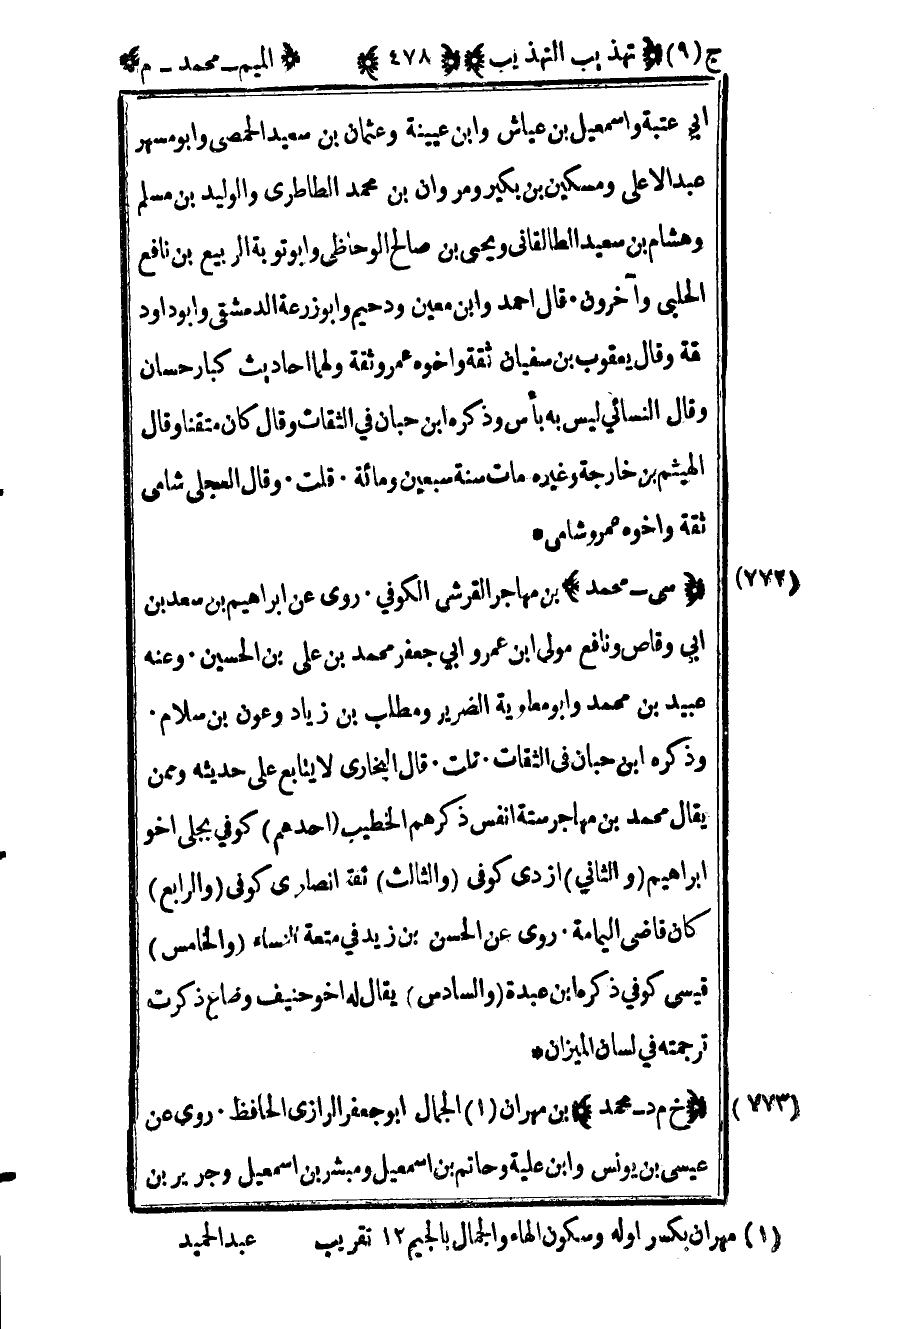 ج (٩) ﴿ تهذيب التهذيب ﴾ ﴿ ٤٧٨ ﴾ ﴿ الميم ــ محمد ــ م ﴾
ابي عتبة واسمعيل بن عياش وابن عيينة وعثمان بن سعيد الحمصى وابومسهر
عبد الاعلى ومسكين بن بكير ومروان بن محمد الطاطرى والوليد بن مسلم
وهشام بن سعيد الطالقانى ويحيى بن صالح الوحاظى وابوتوبة الربيع بن نافع
الحلبى وآخرون · قال احمد وابن معين ودحيم وابوزرعة الدمشقى وابوداود
قة وقال يعقوب بن سفيان ثقة واخوه عمرو ثقة ولهما احاديث كبار حسان
وقال النسائي ليس به بأس وذكره ابن حبان في الثقات وقال كان متقنا وقال
الهيثم بن خارجة وغيره مات سنة سبعين ومائة · قلت · وقال العجلى شامى
ثقة واخوه عمرو شامى *
(٧٧٢) ﴿ سى ــ محمد ﴾ بن مهاجر القرشى الكوفي · روى عن ابراهيم بن سعد بن
ابي وقاص ونافع مولى ابن عمرو ابي جعفر محمد بن على بن الحسين · وعنه
عبيد بن محمد وابومعاوية الضرير ومطلب بن زياد وعون بن سلام ·
وذكره ابن حبان فى الثقات · قلت · قال البخارى لا يتابع على حديثه وممن
يقال محمد بن مهاجر ستة انفس ذكرهم الخطيب (احدهم) كوفي بجلى اخو
ابراهيم (والثاني) ازدى كوفى (والثالث) ثقة انصارى كوفى (والرابع)
كان قاضى اليمامة · روى عن الحسن بن زيد في متعة النساء (والخامس)
قيسى كوفي ذكره ابن عبدة (والسادس) يقال له اخو حنيف وضاع ذكرت
ترجمته في لسان الميزان *
(٧٧٣) ﴿ خ م د ــ محمد ﴾ بن مهران (١) الجمال ابو جعفر الرازى الحافظ · روى عن
عيسى بن يونس وابن علية وحاتم بن اسمعيل ومبشر بن اسمعيل وجرير بن
(١) مهران بكسر اوله وسكون الهاء والجمال بالجيم ١٢ تقريب عبد الحميد